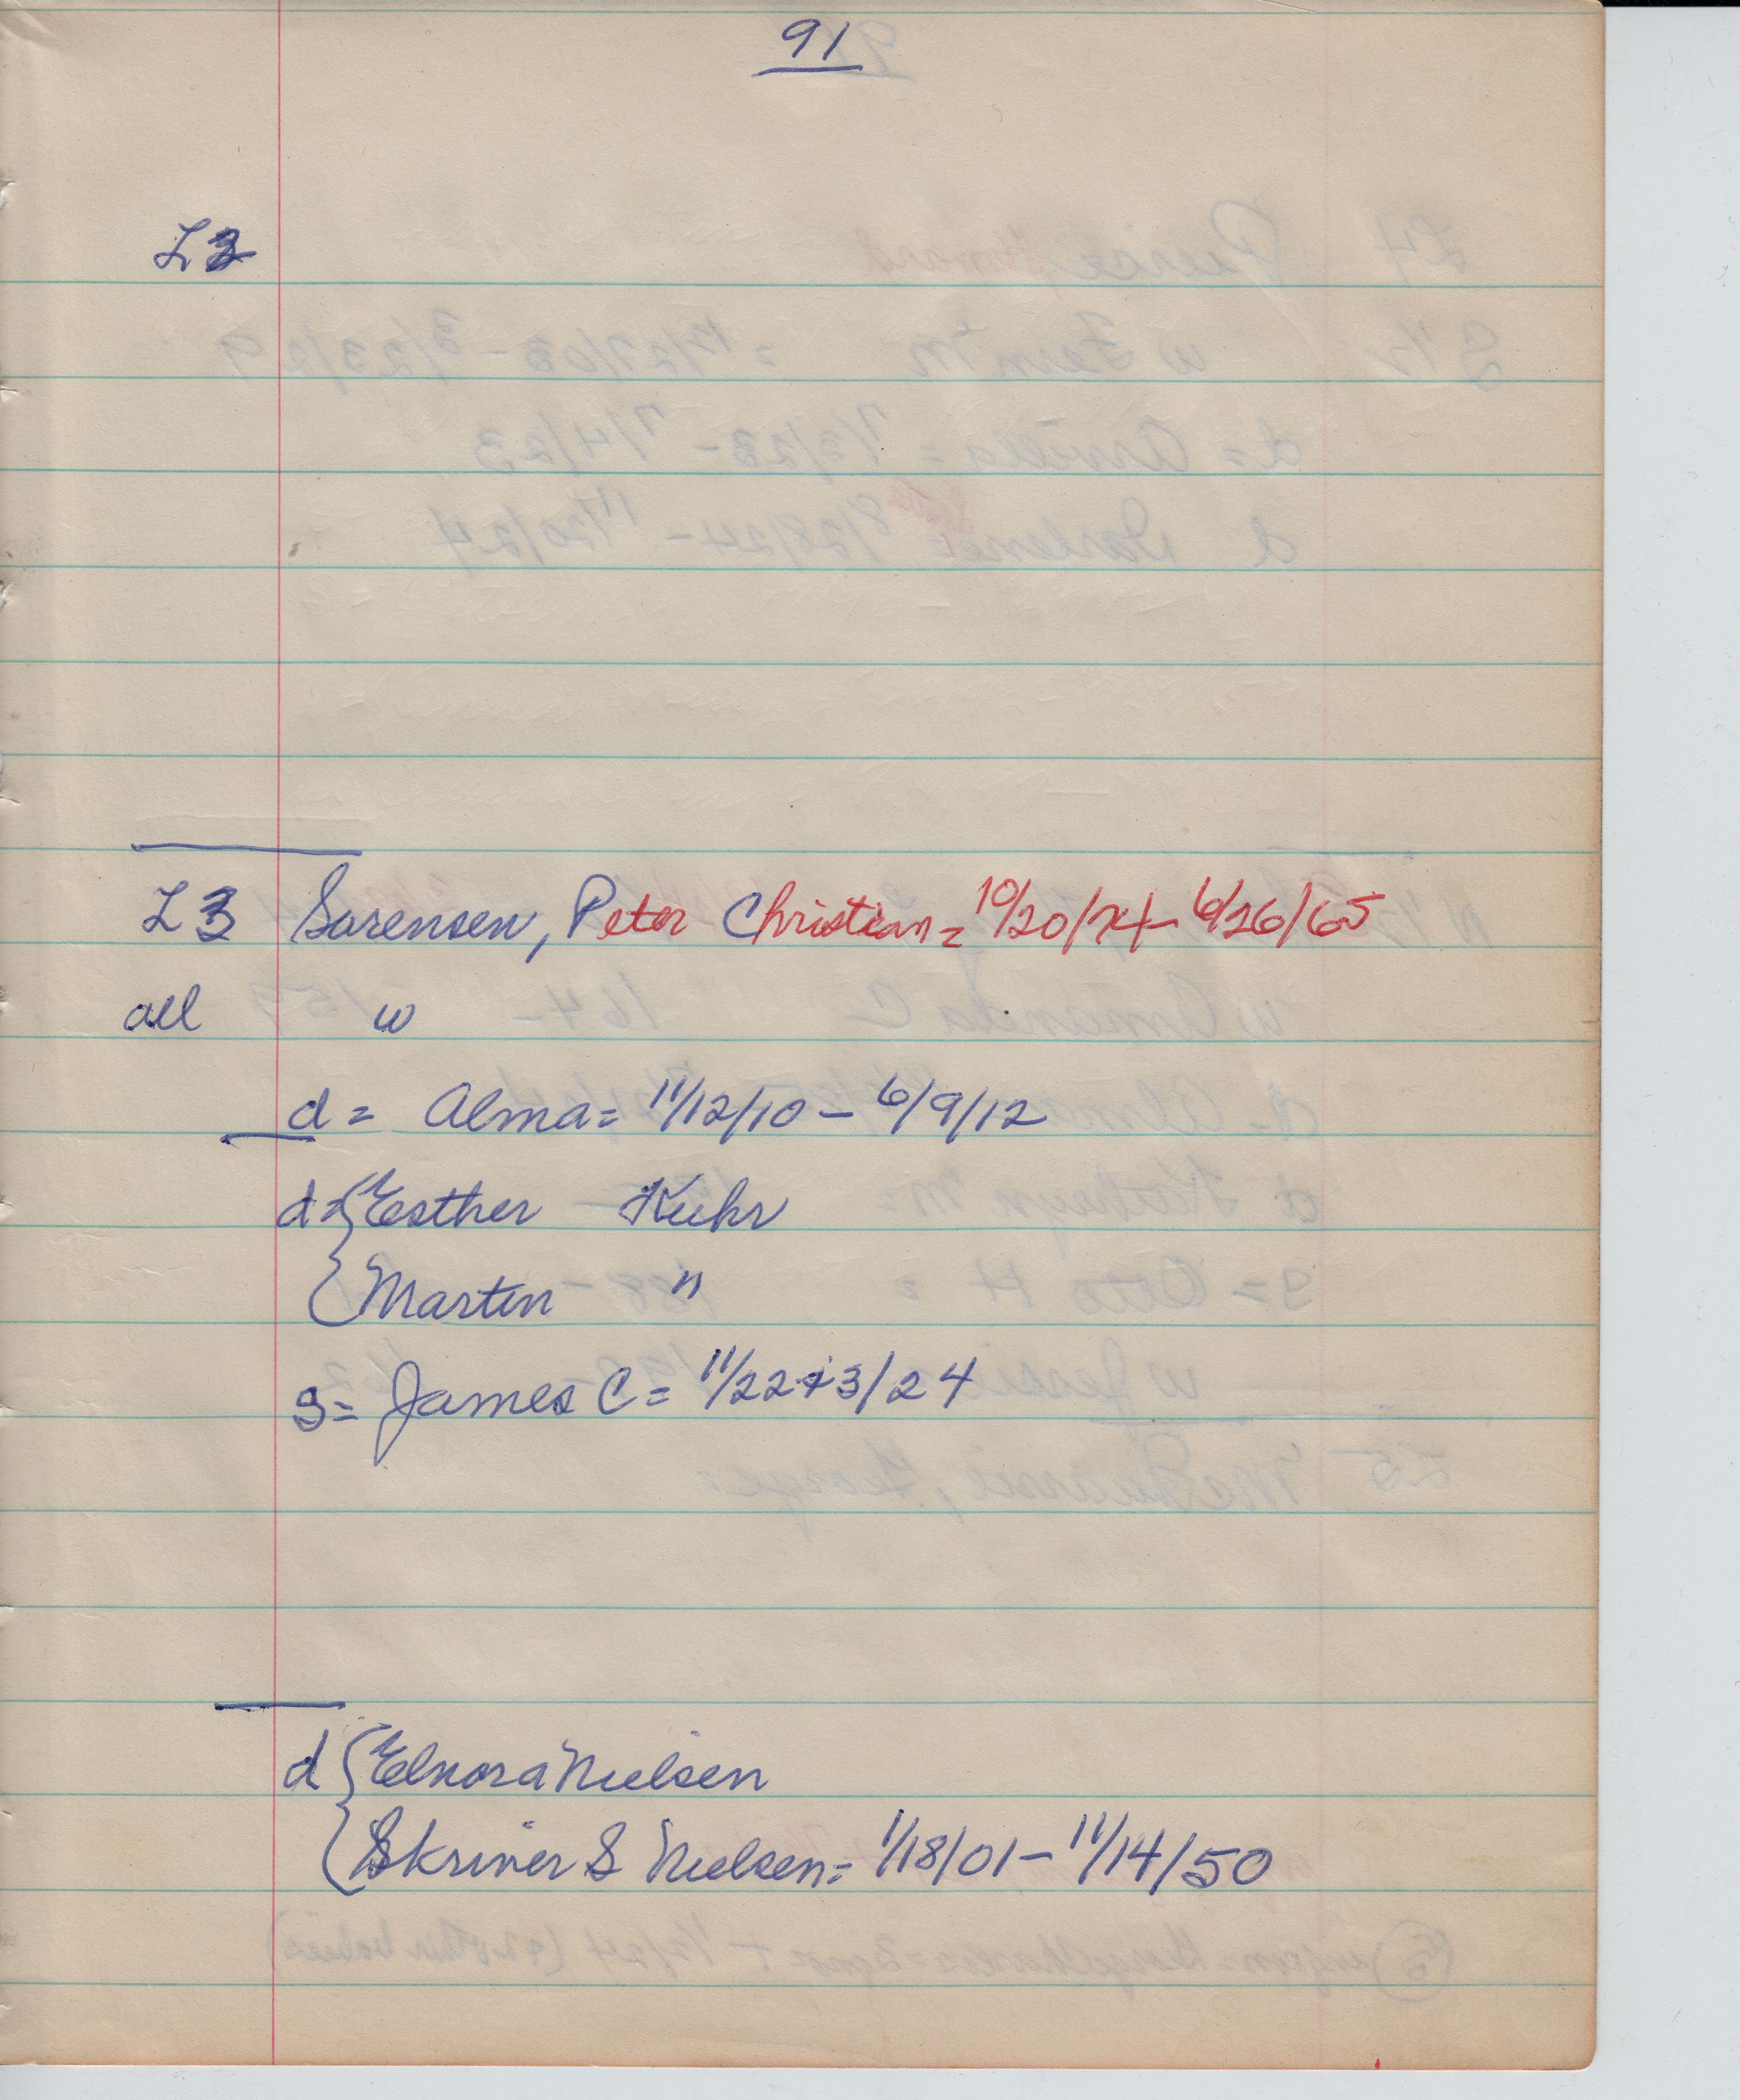 91
L3
L3 Sorensen, Peter Christian = 10/20/74 - 6/26/65
all w
d = Alma = 11/12/10 - 6/9/12
d = { Esther Kuhr
{ Martin "
s = James C = 11/22 + 3/24
d { Elnora Nielsen
{ Skriver S Nielsen = 1/18/01 - 11/14/50